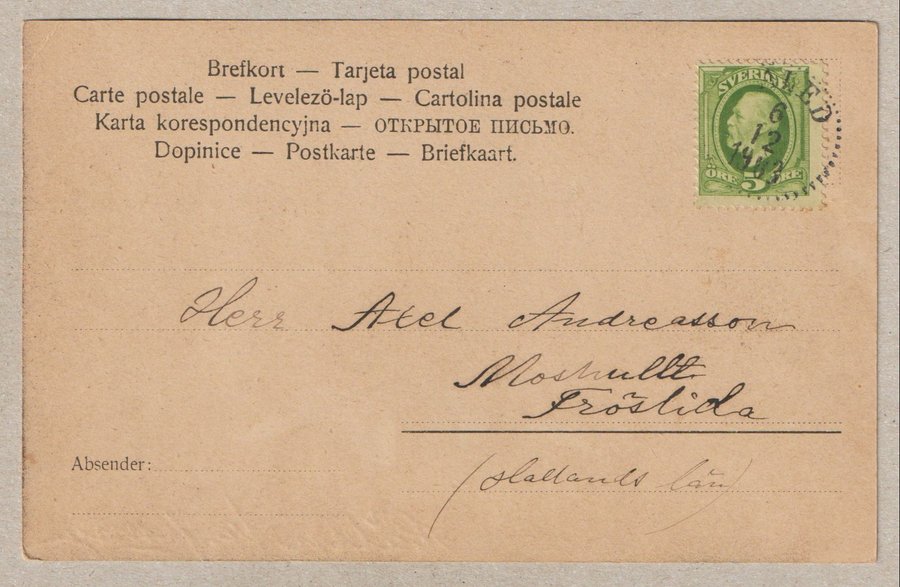 Brefkort — Tarjeta postal
Carte postale — Levelező-lap — Cartolina postale
Karta korespondencyjna — ОТКРЫТОЕ ПИСЬМО.
Dopinice — Postkarte — Briefkaart.
SVERIGE
6
12
1903
ÖRE 5 ÖRE
Herr Axel Andreasson
Moshullt
Fröslida
Absender:
(Hallands län)